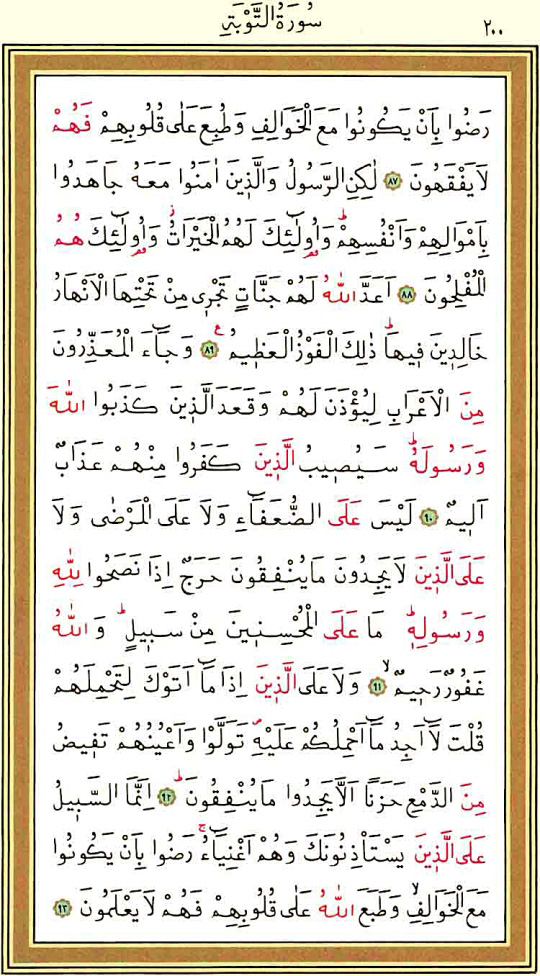 سُورَةُ التَّوْبَةِ ٢٠٠
رَضُوا بِاَنْ يَكُونُوا مَعَ الْخَوَالِفِ وَطُبِعَ عَلٰى قُلُوبِهِمْ فَهُمْ
لَا يَفْقَهُونَ ﴿٨٧﴾ لٰكِنِ الرَّسُولُ وَالَّذ۪ينَ اٰمَنُوا مَعَهُ جَاهَدُوا
بِاَمْوَالِهِمْ وَاَنْفُسِهِمْۜ وَاُو۬لٰٓئِكَ لَهُمُ الْخَيْرَاتُۘ وَاُو۬لٰٓئِكَ هُمُ
الْمُفْلِحُونَ ﴿٨٨﴾ اَعَدَّ اللّٰهُ لَهُمْ جَنَّاتٍ تَجْر۪ي مِنْ تَحْتِهَا الْاَنْهَارُ
خَالِد۪ينَ ف۪يهَاۜ ذٰلِكَ الْفَوْزُ الْعَظ۪يمُ۟ ﴿٨٩﴾ وَجَٓاءَ الْمُعَذِّرُونَ
مِنَ الْاَعْرَابِ لِيُؤْذَنَ لَهُمْ وَقَعَدَ الَّذ۪ينَ كَذَبُوا اللّٰهَ
وَرَسُولَهُۜ سَيُص۪يبُ الَّذ۪ينَ كَفَرُوا مِنْهُمْ عَذَابٌ
اَل۪يمٌ ﴿٩٠﴾ لَيْسَ عَلَى الضُّعَفَٓاءِ وَلَا عَلَى الْمَرْضٰى وَلَا
عَلَى الَّذ۪ينَ لَا يَجِدُونَ مَا يُنْفِقُونَ حَرَجٌ اِذَا نَصَحُوا لِلّٰهِ
وَرَسُولِه۪ۜ مَا عَلَى الْمُحْسِن۪ينَ مِنْ سَب۪يلٍۜ وَاللّٰهُ
غَفُورٌ رَح۪يمٌۙ ﴿٩١﴾ وَلَا عَلَى الَّذ۪ينَ اِذَا مَٓا اَتَوْكَ لِتَحْمِلَهُمْ
قُلْتَ لَٓا اَجِدُ مَٓا اَحْمِلُكُمْ عَلَيْهِۖ تَوَلَّوْا وَاَعْيُنُهُمْ تَف۪يضُ
مِنَ الدَّمْعِ حَزَنًا اَلَّا يَجِدُوا مَا يُنْفِقُونَۜ ﴿٩٢﴾ اِنَّمَا السَّب۪يلُ
عَلَى الَّذ۪ينَ يَسْتَأْذِنُونَكَ وَهُمْ اَغْنِيَٓاءُۚ رَضُوا بِاَنْ يَكُونُوا
مَعَ الْخَوَالِفِۙ وَطَبَعَ اللّٰهُ عَلٰى قُلُوبِهِمْ فَهُمْ لَا يَعْلَمُونَ ﴿٩٣﴾